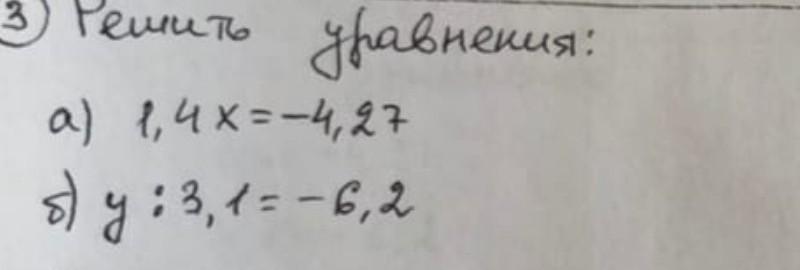 3) Решить уравнения:
а) 1,4x=-4,27
б) y:3,1=-6,2